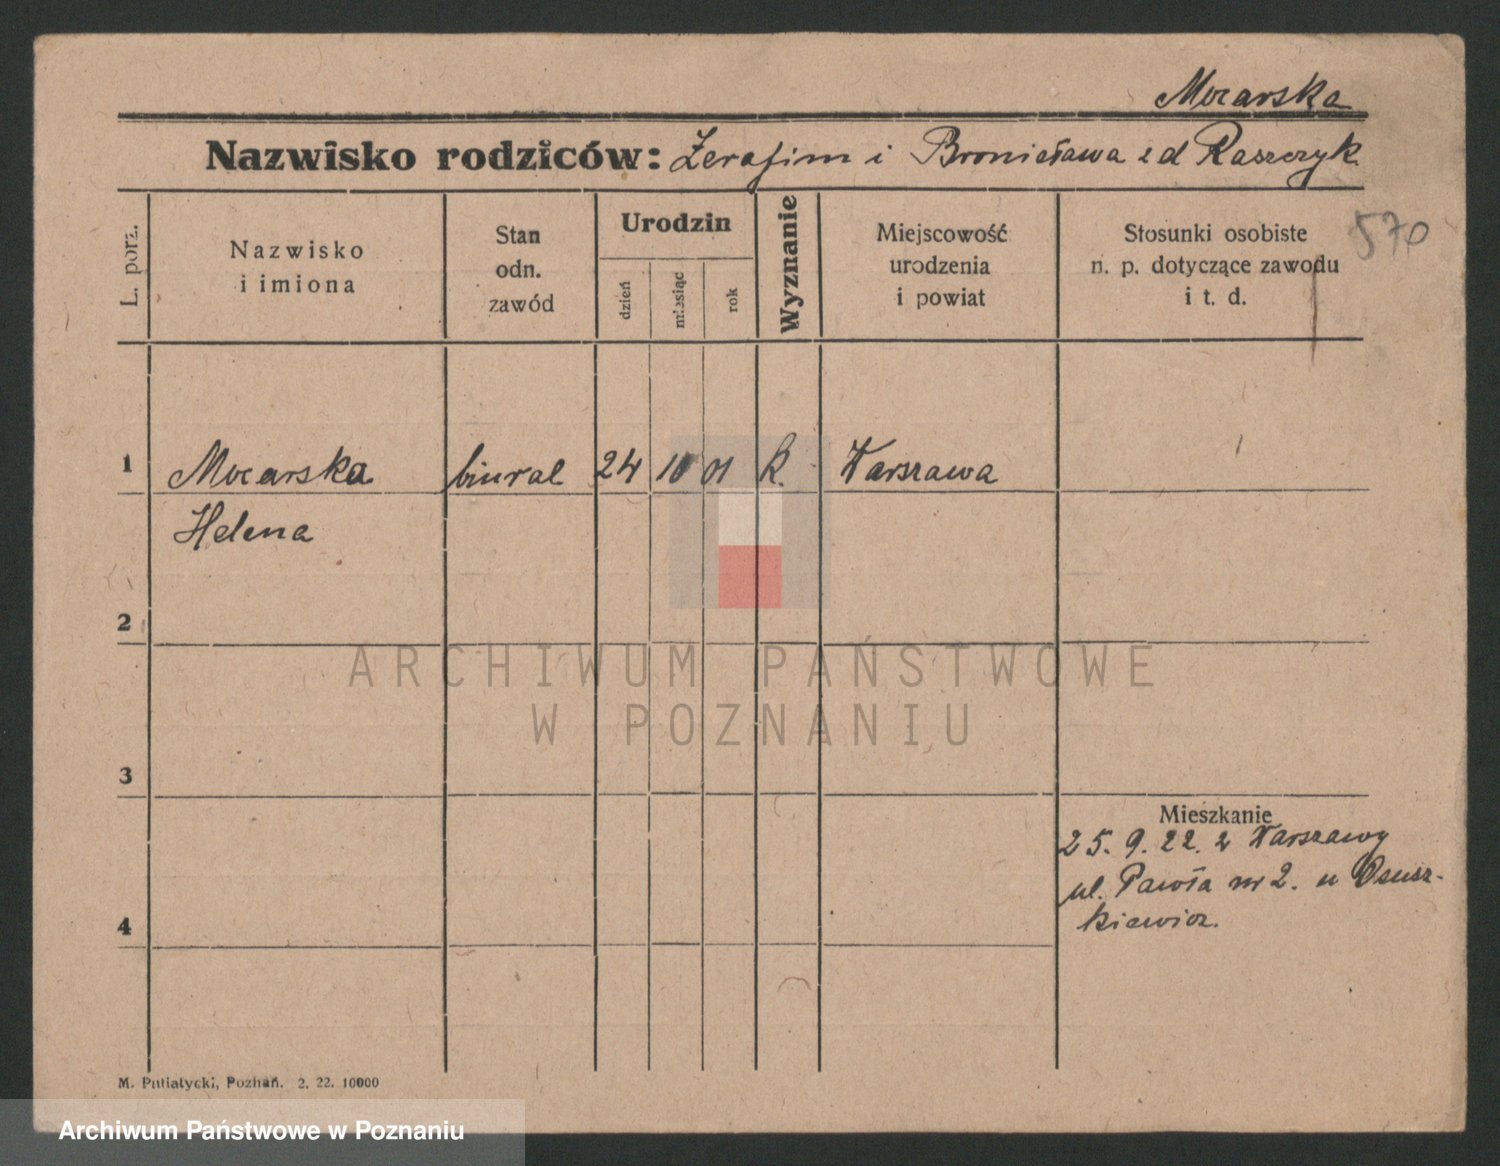 Mocarska
Nazwisko rodziców: Zerafim i Bronisława z d Raszczyk
570
L. porz.
Nazwisko
i imiona
Stan
odn.
zawód
Urodzin
dzień
miesiąc
rok
Wyznanie
Miejscowość
urodzenia
i powiat
Stosunki osobiste
n. p. dotyczące zawodu
i t. d.
1 Mocarska biural 24 10 01 k. Warszawa
Helena
2
ARCHIWUM PAŃSTWOWE
W POZNANIU
3
Mieszkanie
25. 9. 22. z Warszawy
ul. Pawła nr 2. u Osusz-
kiewicz.
4
M. Putiatycki, Poznań. 2. 22. 10000
Archiwum Państwowe w Poznaniu